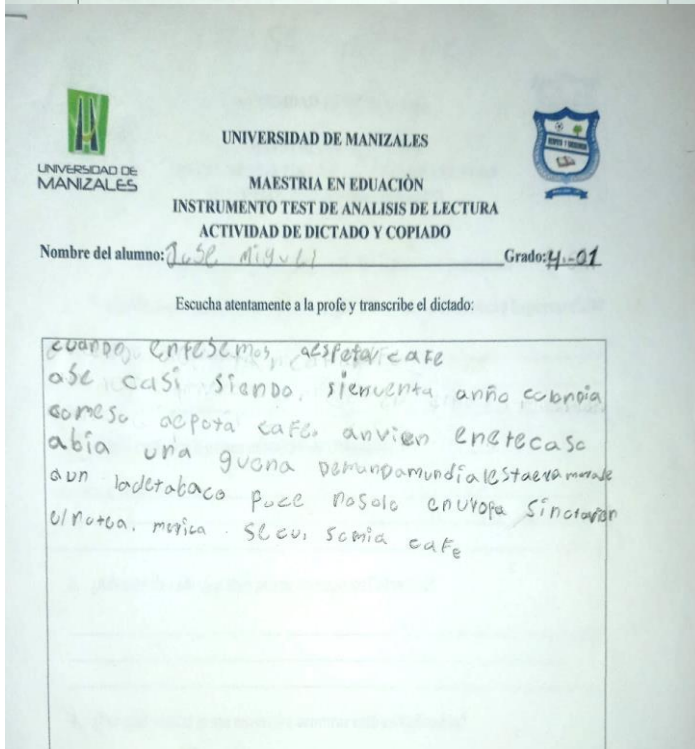 UNIVERSIDAD DE MANIZALES
UNIVERSIDAD DE
MANIZALES
MAESTRIA EN EDUACIÒN
INSTRUMENTO TEST DE ANALISIS DE LECTURA
ACTIVIDAD DE DICTADO Y COPIADO
Nombre del alumno: Jose Miguel Grado: 4-01
Escucha atentamente a la profe y transcribe el dictado:
cuando enpesemos, aespotar cafe
ase casi siendo, sienventa anño colonpia
comeso aepota cafe. anvien enetecaso
abia una guena demanda mundial estaera
aun ladetabaco puze nosolo enuropa sinotanvien
el notea. merica. se cu. somia cafe